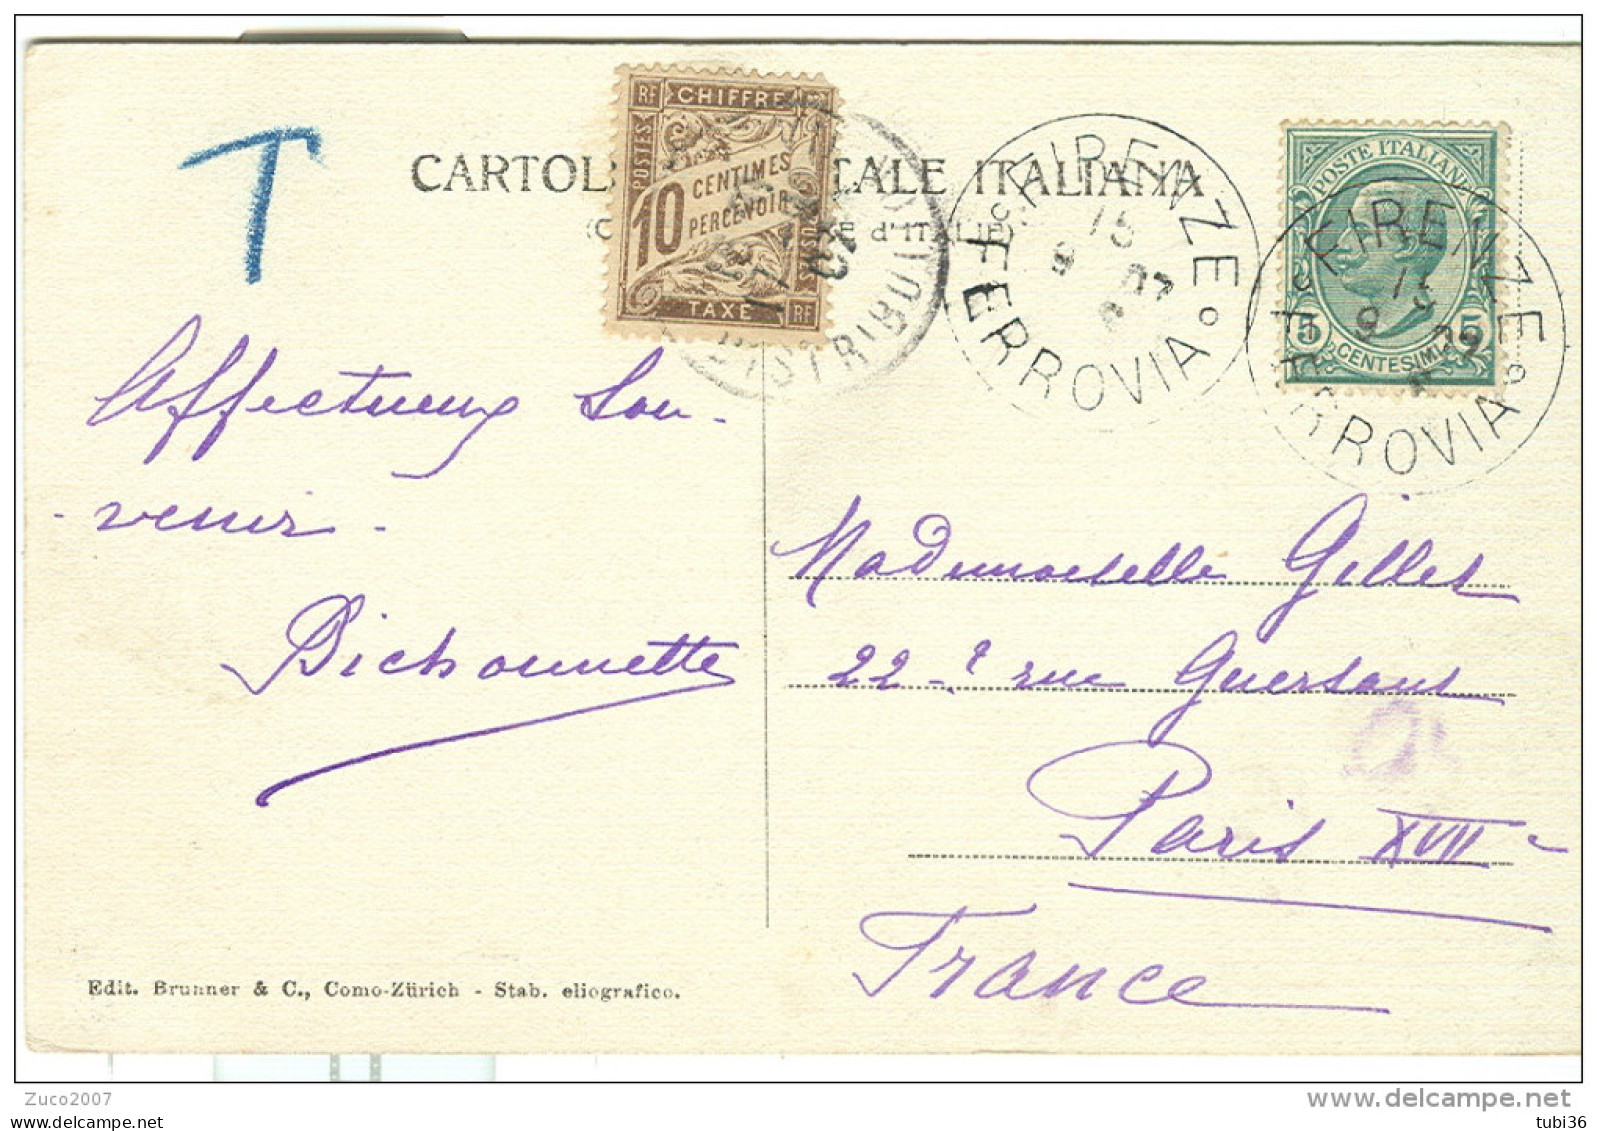 T
RF CHIFFRE
POSTES
10 CENTIMES
PERCEVOIR
TAXE RF
DISTRIBU
CARTOL TALE ITALIANA
(C E d'ITALIE)
FIRENZE
15
9 07
FERROVIA
POSTE ITALIANE
5 5
CENTESIMI
FIRENZE
15
9
FERROVIA
Affectueux Sou-
-venir-
Bichonnette
Mademoiselle Gillet
22 rue Guersant
Paris XVIIe
France
Edit. Brunner & C., Como-Zürich - Stab. eliografico.
Zuco2007
www.delcampe.net
tubi36